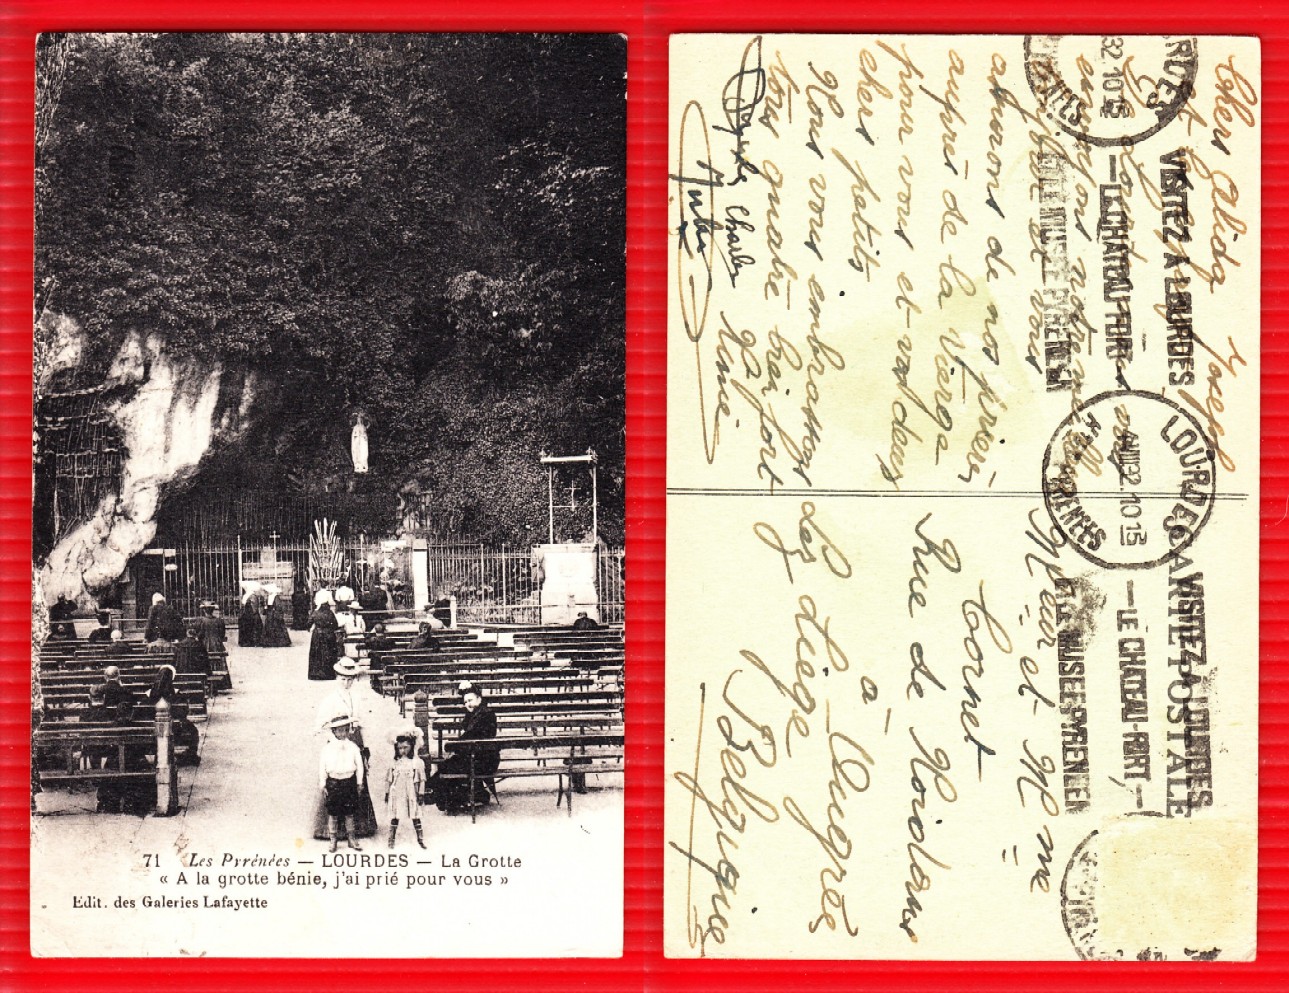 71 Les Pyrénées — LOURDES — La Grotte
« A la grotte bénie, j'ai prié pour vous »
Edit. des Galeries Lafayette
Chers Alida Joseph
et
A Lourdes
de vous
aimerons de nos prières
auprès de la Vierge
pour vous et vos deux
chers petits
Nous vous embrassons
tous quatre bien fort
Charles
CARTE POSTALE
Mr et Mme
Cornet
Rue de Hoidans
à Ougrée
lez Liège
Belgique
LOURDES
32 10 15
VISITEZ LOURDES
— LE CHATEAU-FORT, —
ET LE MUSEE PYRENEEN
VISITEZ LOURDES
— LE CHATEAU-FORT, —
LE MUSEE PYRENEEN
LOURDES
32.10 15
Htes PYRENEES